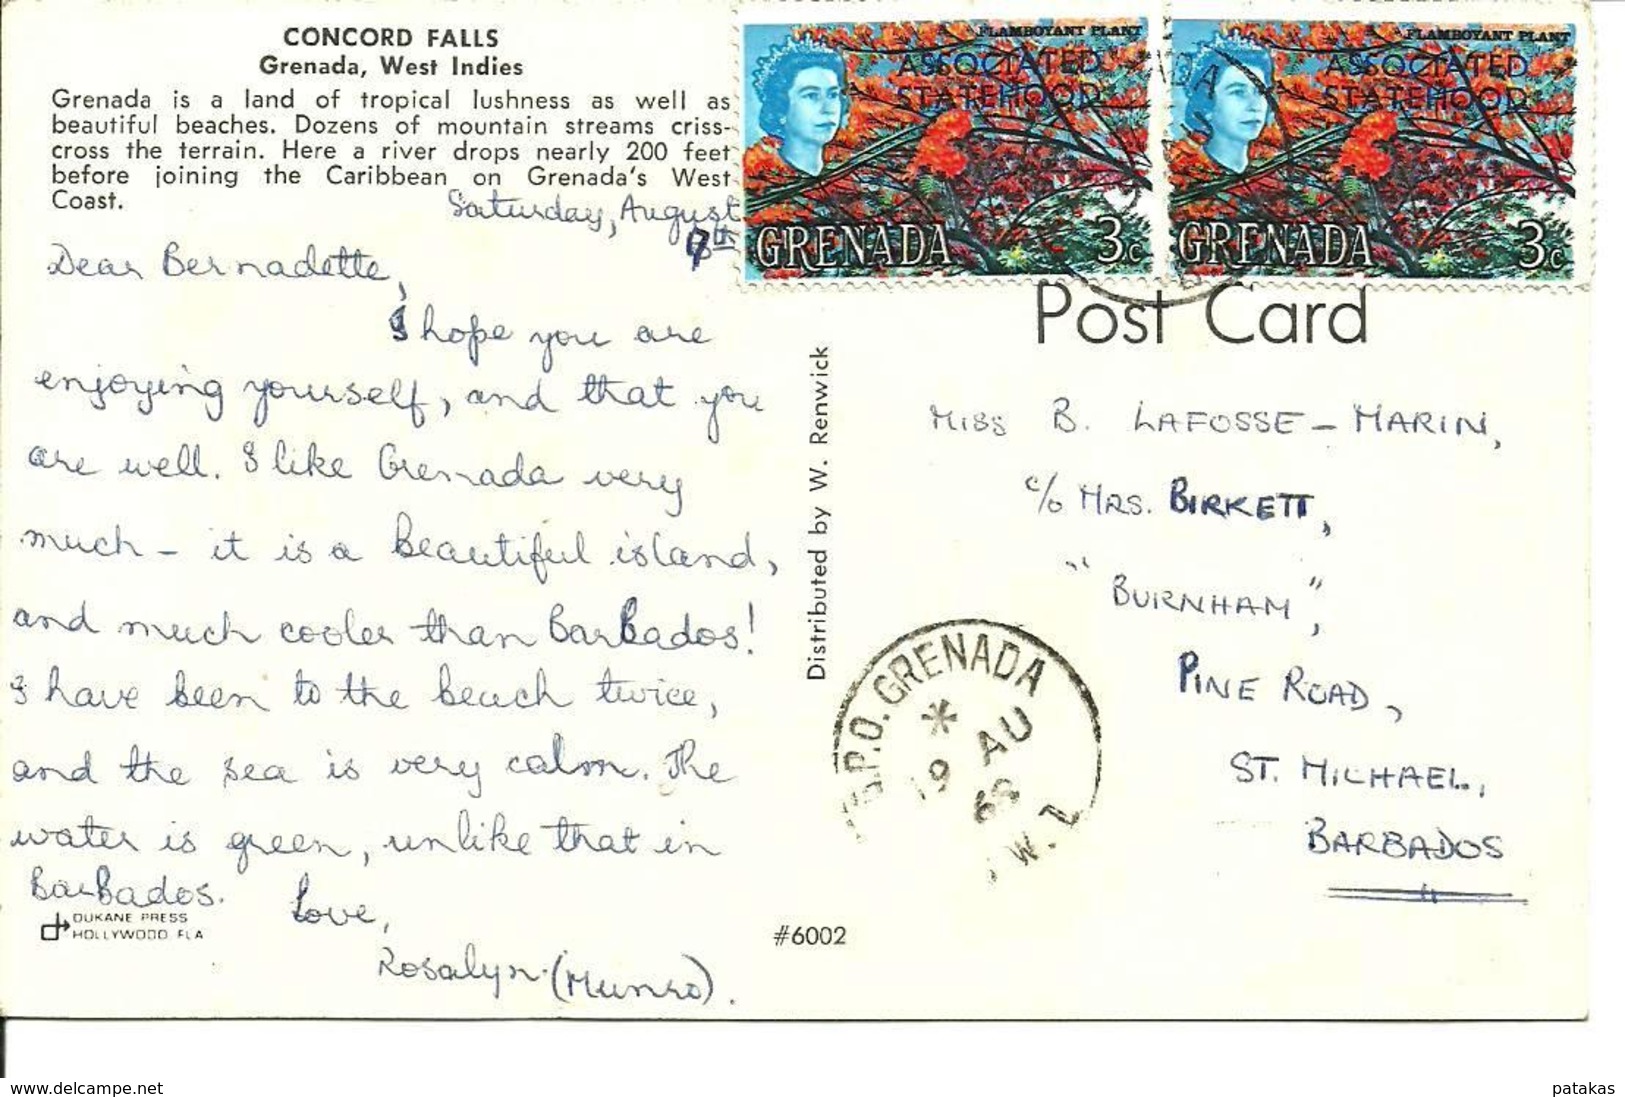 CONCORD FALLS
Grenada, West Indies
Grenada is a land of tropical lushness as well as
beautiful beaches. Dozens of mountain streams criss-
cross the terrain. Here a river drops nearly 200 feet
before joining the Caribbean on Grenada's West
Coast.
Saturday, August
th
Dear Bernadette,
I hope you are
enjoying yourself, and that you
are well. I like Grenada very
much - it is a beautiful island,
and much cooler than Barbados!
I have been to the beach twice,
and the sea is very calm. The
water is green, unlike that in
Barbados.
Love,
Rosalyn (Munro).
DUKANE PRESS
HOLLYWOOD FLA
#6002
Distributed by W. Renwick
FLAMBOYANT PLANT
ASSOCIATED
STATEHOOD
GRENADA 3c
FLAMBOYANT PLANT
ASSOCIATED
STATEHOOD
GRENADA 3c
Post Card
MISS B. LAFOSSE - MARIN,
c/o MRS. BIRKETT,
"BURNHAM",
PINE ROAD,
ST. MICHAEL,
BARBADOS
G.P.O. GRENADA
* AU
19 68
W.I.
www.delcampe.net
patakas